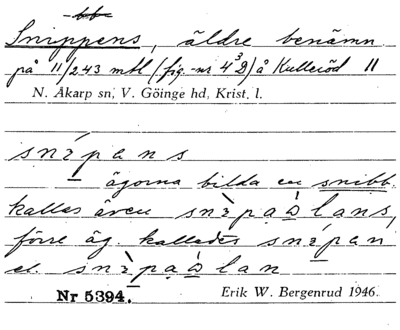 Snippens, äldre benämn.
på 11/243 mtl (fig.-nr 4³D) å Kulleröd 11
N. Åkarp sn, V. Göinge hd, Krist. l.
snipans
ägorna bilda en snibb.
kallas även snipaålans,
förre äg. kallades snipan
el. snipaålan
Nr 5394. Erik W. Bergenrud 1946.